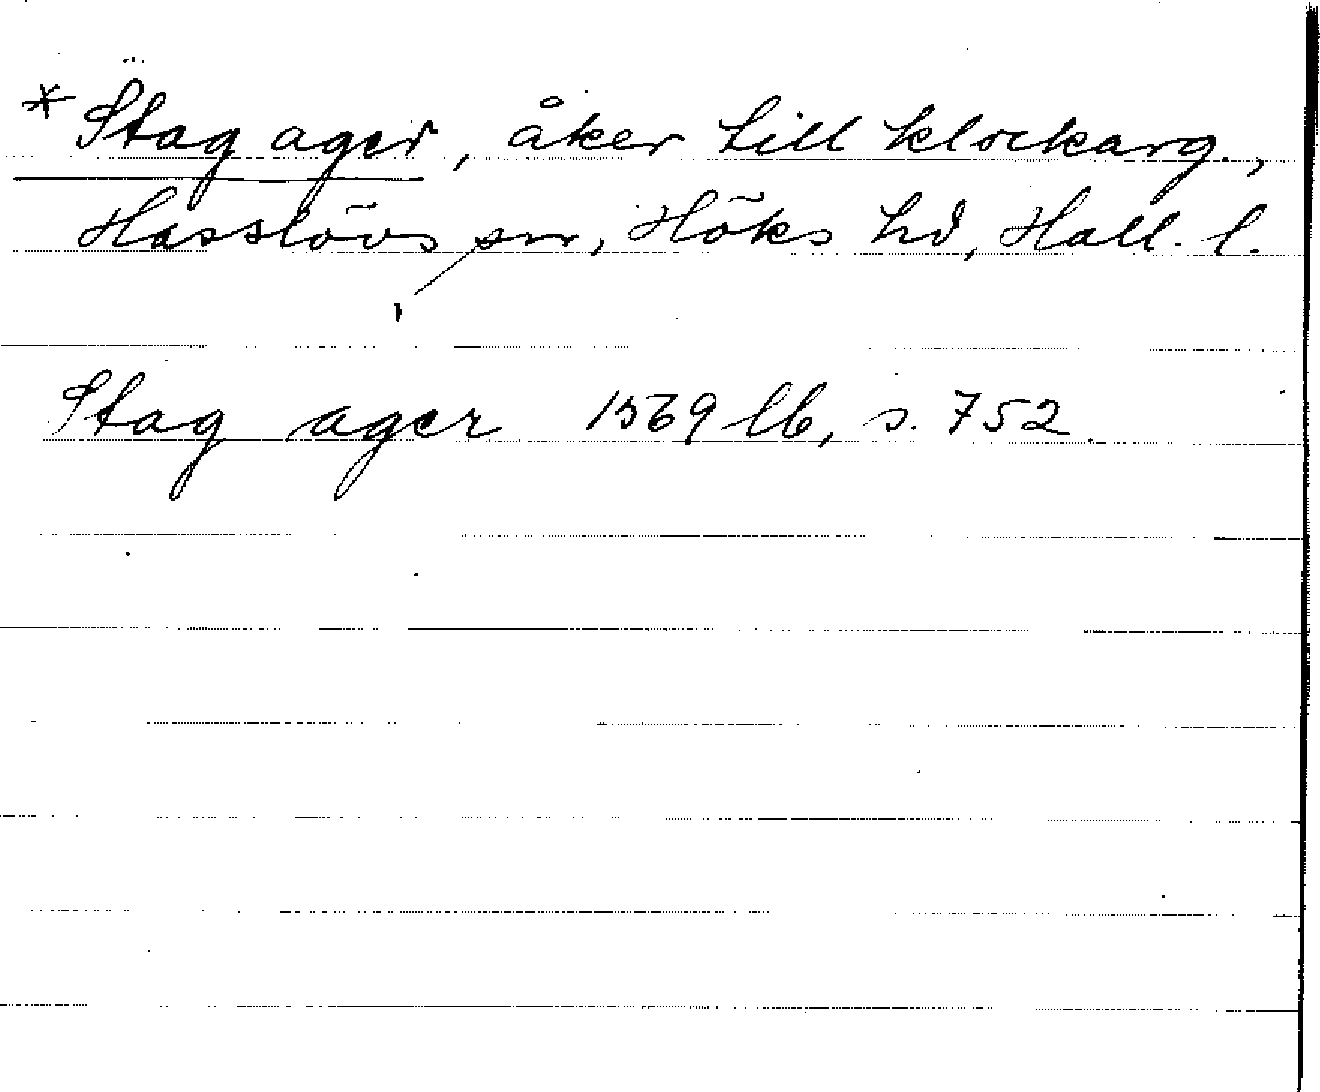 * Stag ager, åker till klockarg.,
Hasslövs sn, Höks hd, Hall. l.
Stag ager 1569 lb, s. 752.